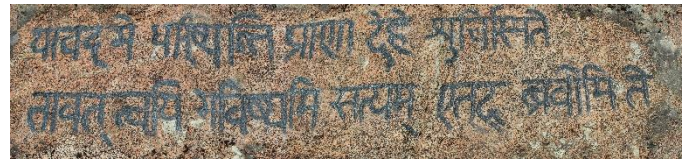 यावद् मे धरिष्यन्ति प्राणा देहे शुचिस्मिते
तावत् त्वयि भविष्यमि सत्यम एतद् ब्रवीमि ते